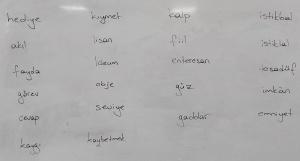 hediye
akıl
fayda
görev
cevap
kaygı
kıymet
lisan
obje
seviye
kaybetmek
kalp
fiil
enteresan
güz
gaddar
istikbal
istiklal
tesadüf
imkân
emniyet